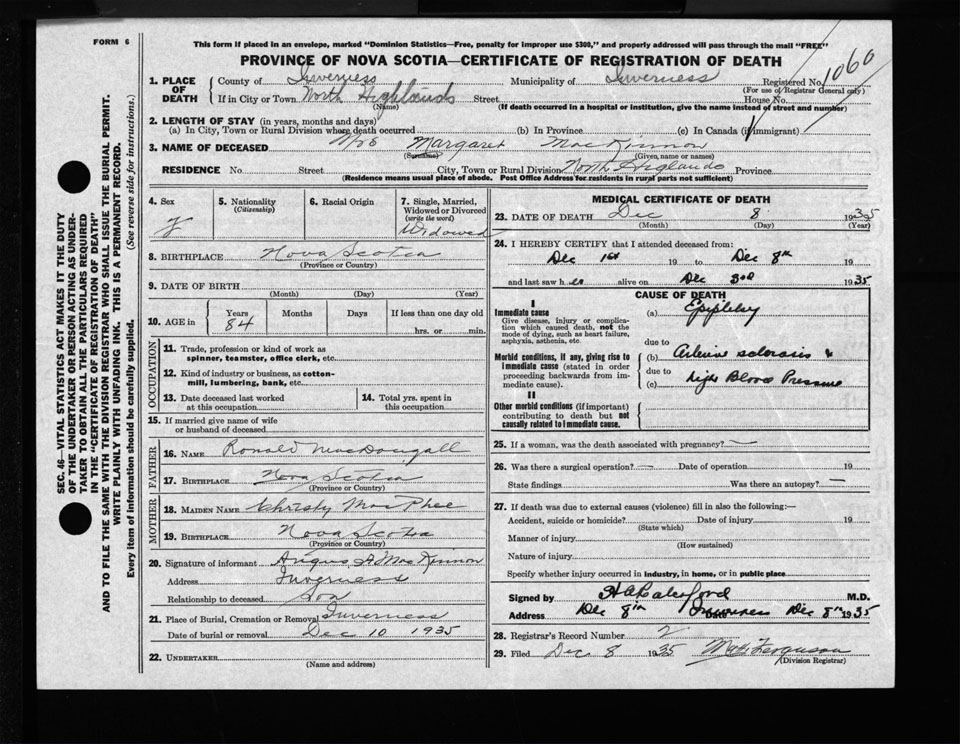 FORM 6
This form if placed in an envelope, marked "Dominion Statistics—Free, penalty for improper use $300," and properly addressed will pass through the mail "FREE"
PROVINCE OF NOVA SCOTIA—CERTIFICATE OF REGISTRATION OF DEATH
1060
1. PLACE OF DEATH
County of Inverness Municipality of Inverness Registered No.
(For use of Registrar General only)
If in City or Town North Highlands Street House No.
(Name) (If death occurred in a hospital or institution, give the name instead of street and number)
2. LENGTH OF STAY (in years, months and days)
(a) In City, Town or Rural Division where death occurred (b) In Province (c) In Canada (if immigrant)
3. NAME OF DECEASED Mrs Margaret MacKinnon
(Surname) (Given, name or names)
RESIDENCE No. Street City, Town or Rural Division North Highlands Province
(Residence means usual place of abode. Post Office Address for residents in rural parts not sufficient)
4. Sex
F
5. Nationality
(Citizenship)
6. Racial Origin
7. Single, Married, Widowed or Divorced
(write the word)
Widowed
8. BIRTHPLACE Nova Scotia
(Province or Country)
9. DATE OF BIRTH
(Month) (Day) (Year)
10. AGE in
Years Months Days If less than one day old
84 hrs. or min.
OCCUPATION
11. Trade, profession or kind of work as spinner, teamster, office clerk, etc.
12. Kind of industry or business, as cotton-mill, lumbering, bank, etc.
13. Date deceased last worked at this occupation
14. Total yrs. spent in this occupation
15. If married give name of wife or husband of deceased
FATHER
16. NAME Ronald MacDougall
17. BIRTHPLACE Nova Scotia
(Province or Country)
MOTHER
18. MAIDEN NAME Christy MacPhee
19. BIRTHPLACE Nova Scotia
(Province or Country)
20. Signature of informant Angus A MacKinnon
Address Inverness
Relationship to deceased Son
21. Place of Burial, Cremation or Removal Inverness
Date of burial or removal Dec 10 1935
22. UNDERTAKER
(Name and address)
MEDICAL CERTIFICATE OF DEATH
23. DATE OF DEATH Dec 8 1935
(Month) (Day) (Year)
24. I HEREBY CERTIFY that I attended deceased from:
Dec 1st 19 to Dec 8th 19
and last saw her alive on Dec 3rd 1935
CAUSE OF DEATH
I
Immediate cause
Give disease, injury or complication which caused death, not the mode of dying, such as heart failure, asphyxia, asthenia, etc.
(a)
due to
Morbid conditions, if any, giving rise to immediate cause (stated in order proceeding backwards from immediate cause).
(b) sclerosis &
due to
(c) High Blood Pressure
II
Other morbid conditions (if important) contributing to death but not causally related to immediate cause.
25. If a woman, was the death associated with pregnancy? —
26. Was there a surgical operation? — Date of operation 19
State findings Was there an autopsy? —
27. If death was due to external causes (violence) fill in also the following:—
Accident, suicide or homicide? Date of injury 19
(State which)
Manner of injury
(How sustained)
Nature of injury
Specify whether injury occurred in industry, in home, or in public place
Signed by M.D.
Address Dec 8th Inverness Date Dec 8th 1935
28. Registrar's Record Number 2
29. Filed Dec. 8 1935 Ferguson
(Division Registrar)
SEC. 46—VITAL STATISTICS ACT MAKES IT THE DUTY
OF THE UNDERTAKER OR PERSON ACTING AS UNDER-
TAKER TO OBTAIN ALL THE PARTICULARS REQUIRED
IN THE "CERTIFICATE OF REGISTRATION OF DEATH"
AND TO FILE THE SAME WITH THE DIVISION REGISTRAR WHO SHALL ISSUE THE BURIAL PERMIT.
WRITE PLAINLY WITH UNFADING INK. THIS IS A PERMANENT RECORD.
Every item of information should be carefully supplied. (See reverse side for instructions.)